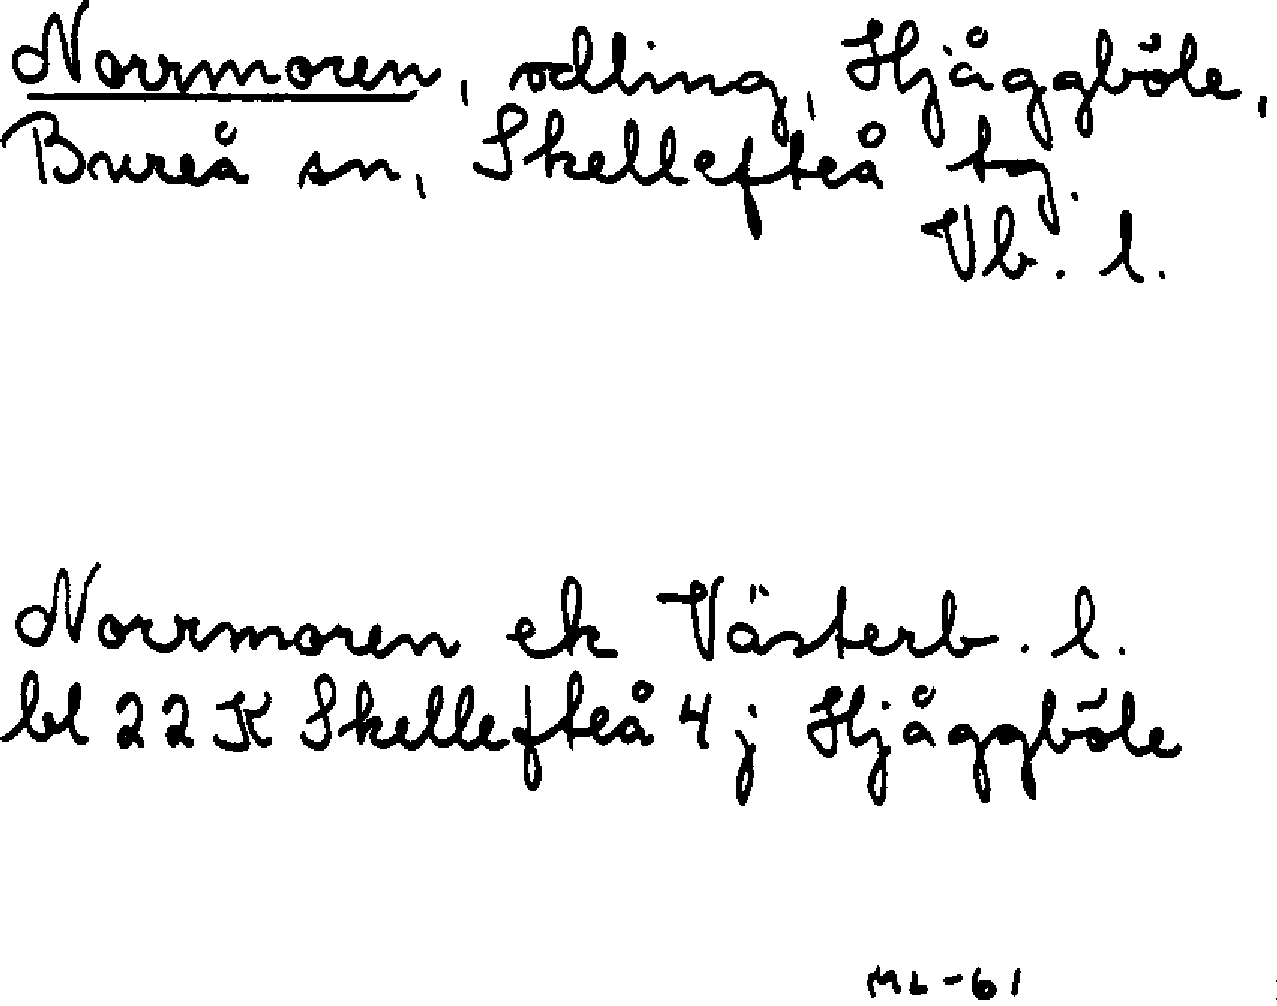 Norrmoren, odling, Hjåggböle,
Bureå sn, Skellefteå tg.
Vb. l.
Norrmoren ek Västerb. l.
bl 22K Skellefteå 4j Hjåggböle
ML-61